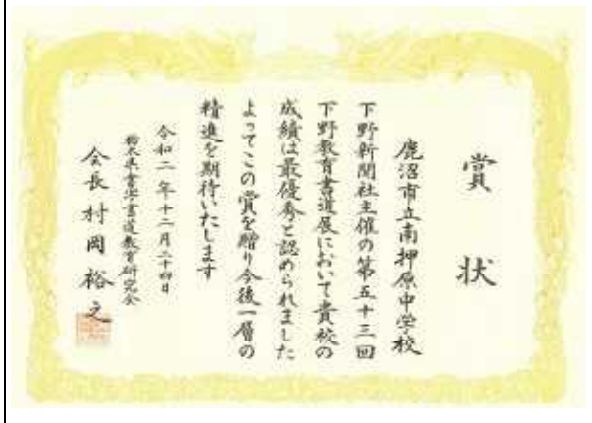 賞状
鹿沼市立南押原中学校
下野新聞社主催の第五十三回
下野教育書道展において貴校の
成績は最優秀と認められました
よってこの賞を贈り今後一層の
精進を期待いたします
令和二年十二月二十四日
栃木県書写書道教育研究会
会長村岡裕之